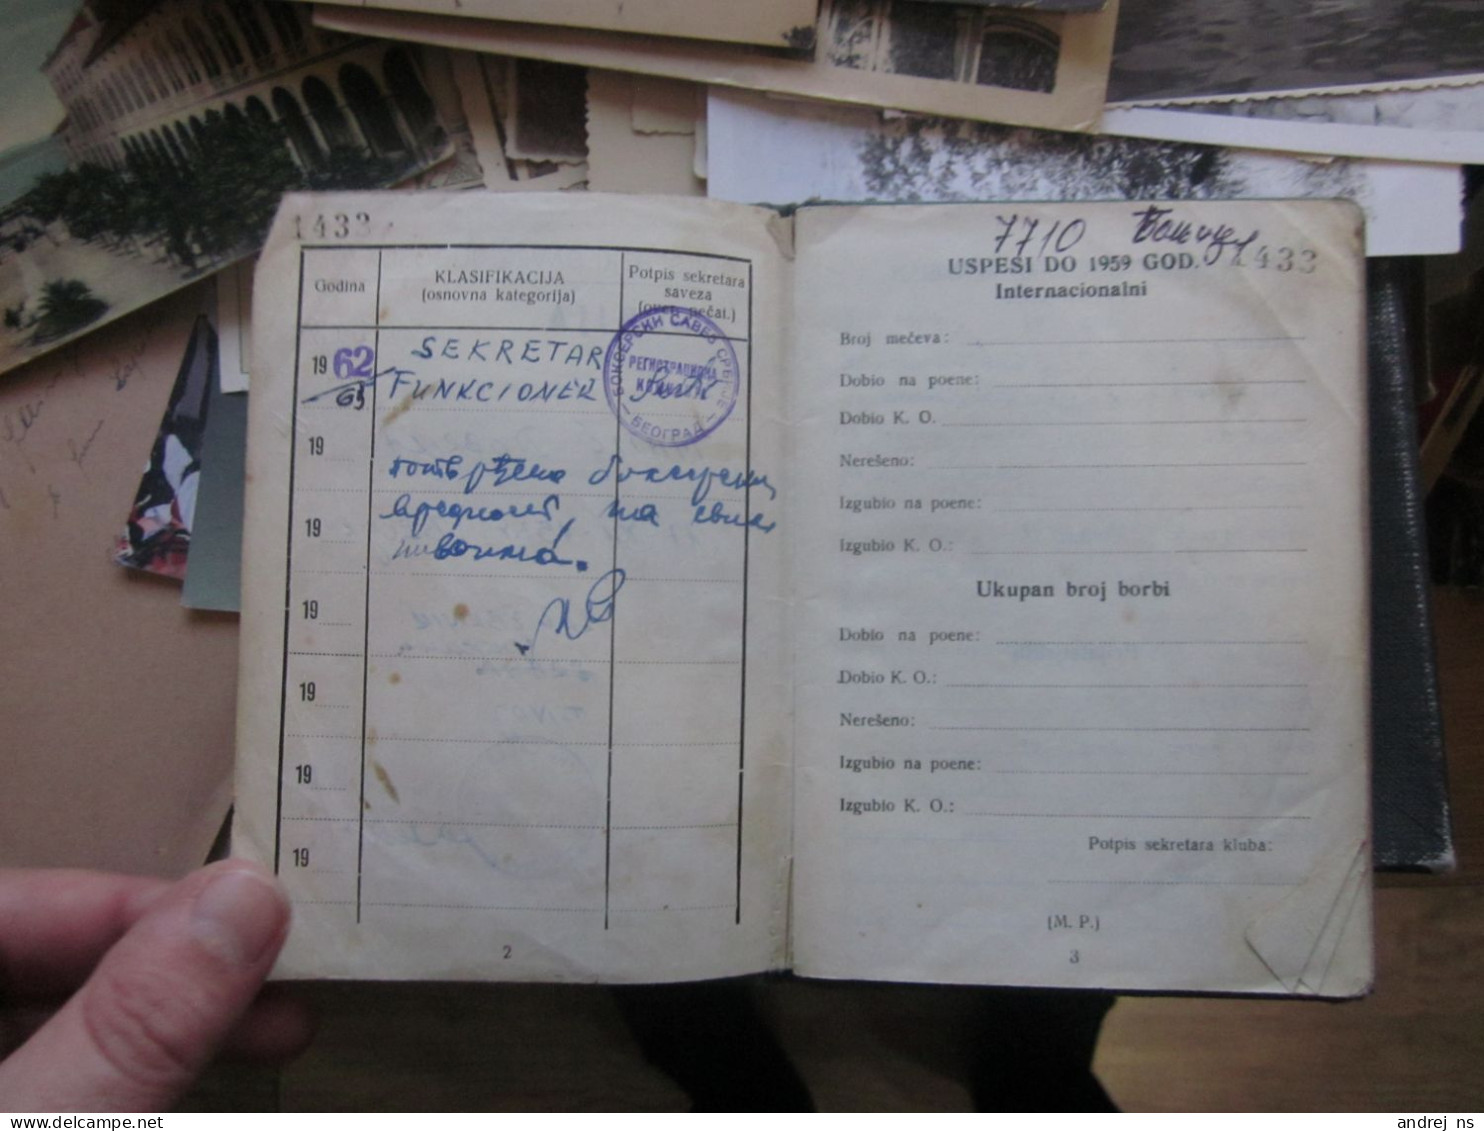 1433
Godina
KLASIFIKACIJA
(osnovna kategorija)
Potpis sekretara
saveza
(over. pečat.)
1962
63
SEKRETAR
FUNKCIONER
БОКСЕРСКИ САВЕЗ СРБИЈЕ
РЕГИСТРАЦИОНА
— БЕОГРАД —
19
19
19
19
19
19
2
7710
1433
USPESI DO 1959 GOD.
Internacionalni
Broj mečeva:
Dobio na poene:
Dobio K. O.
Nerešeno:
Izgubio na poene:
Izgubio K. O.:
Ukupan broj borbi
Dobio na poene:
Dobio K. O.:
Nerešeno:
Izgubio na poene:
Izgubio K. O.:
Potpis sekretara kluba:
(M. P.)
3
andrej ns